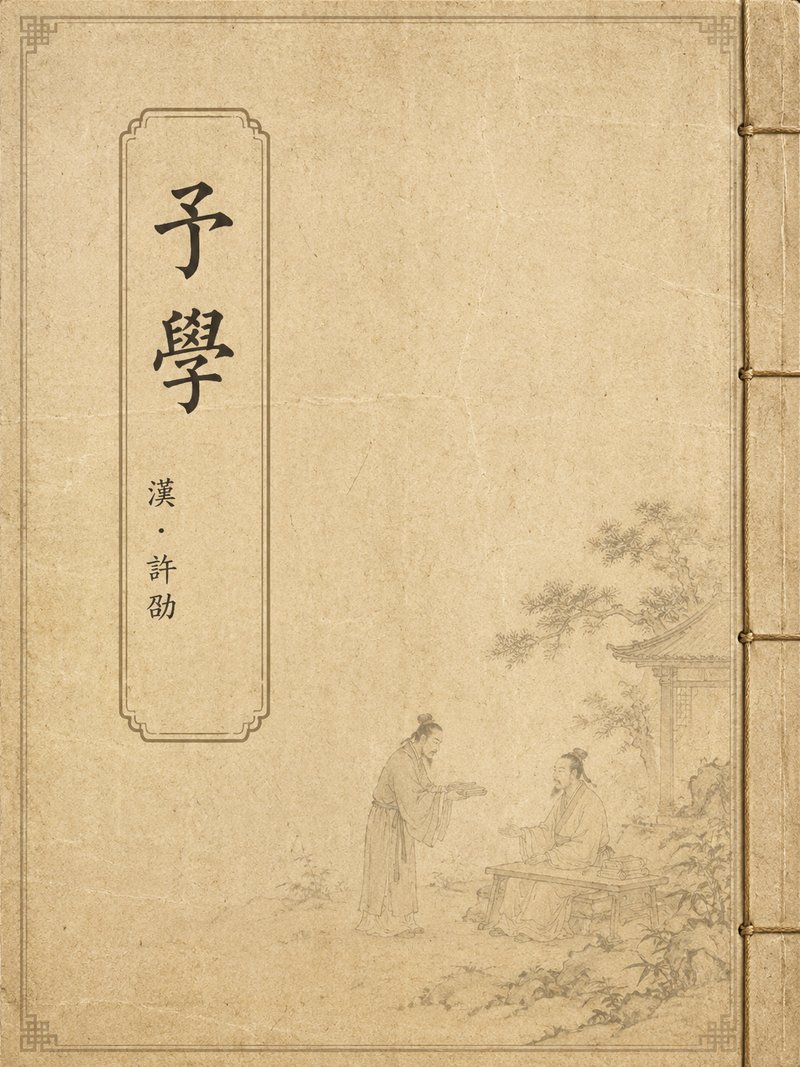 予學
漢·許劭